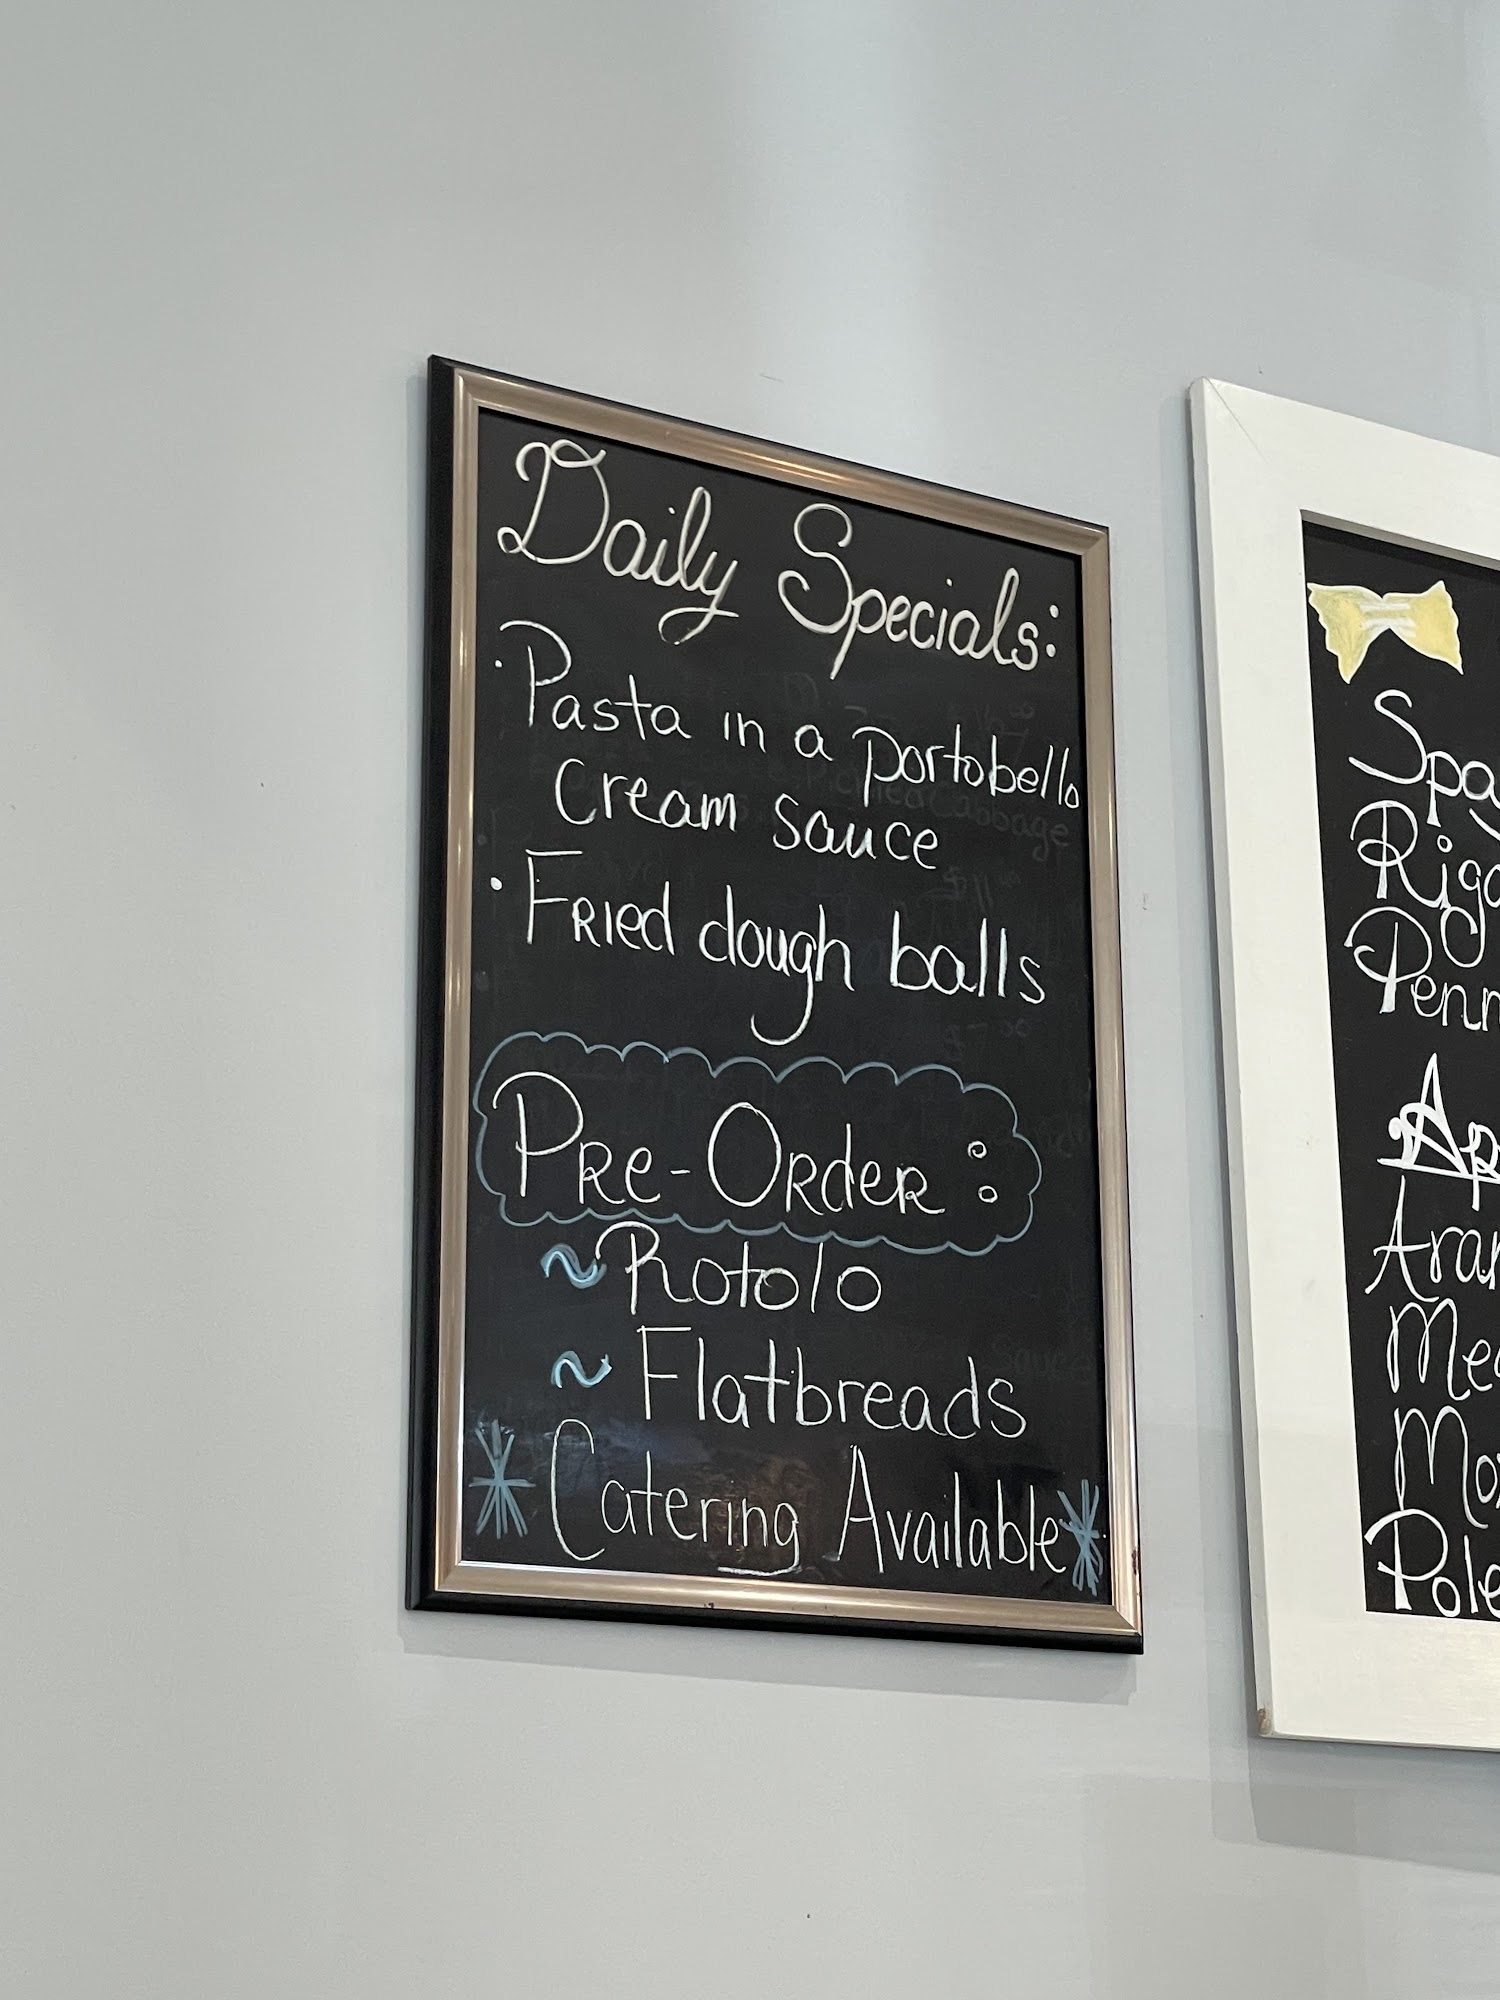 Daily Specials:
• Pasta in a portobello
cream sauce
• Fried dough balls
Pre-Order:
~ Rotolo
~ Flatbreads
* Catering Available *
Spa
Riga
Penn
Ap
Aran
Mea
Moz
Pole